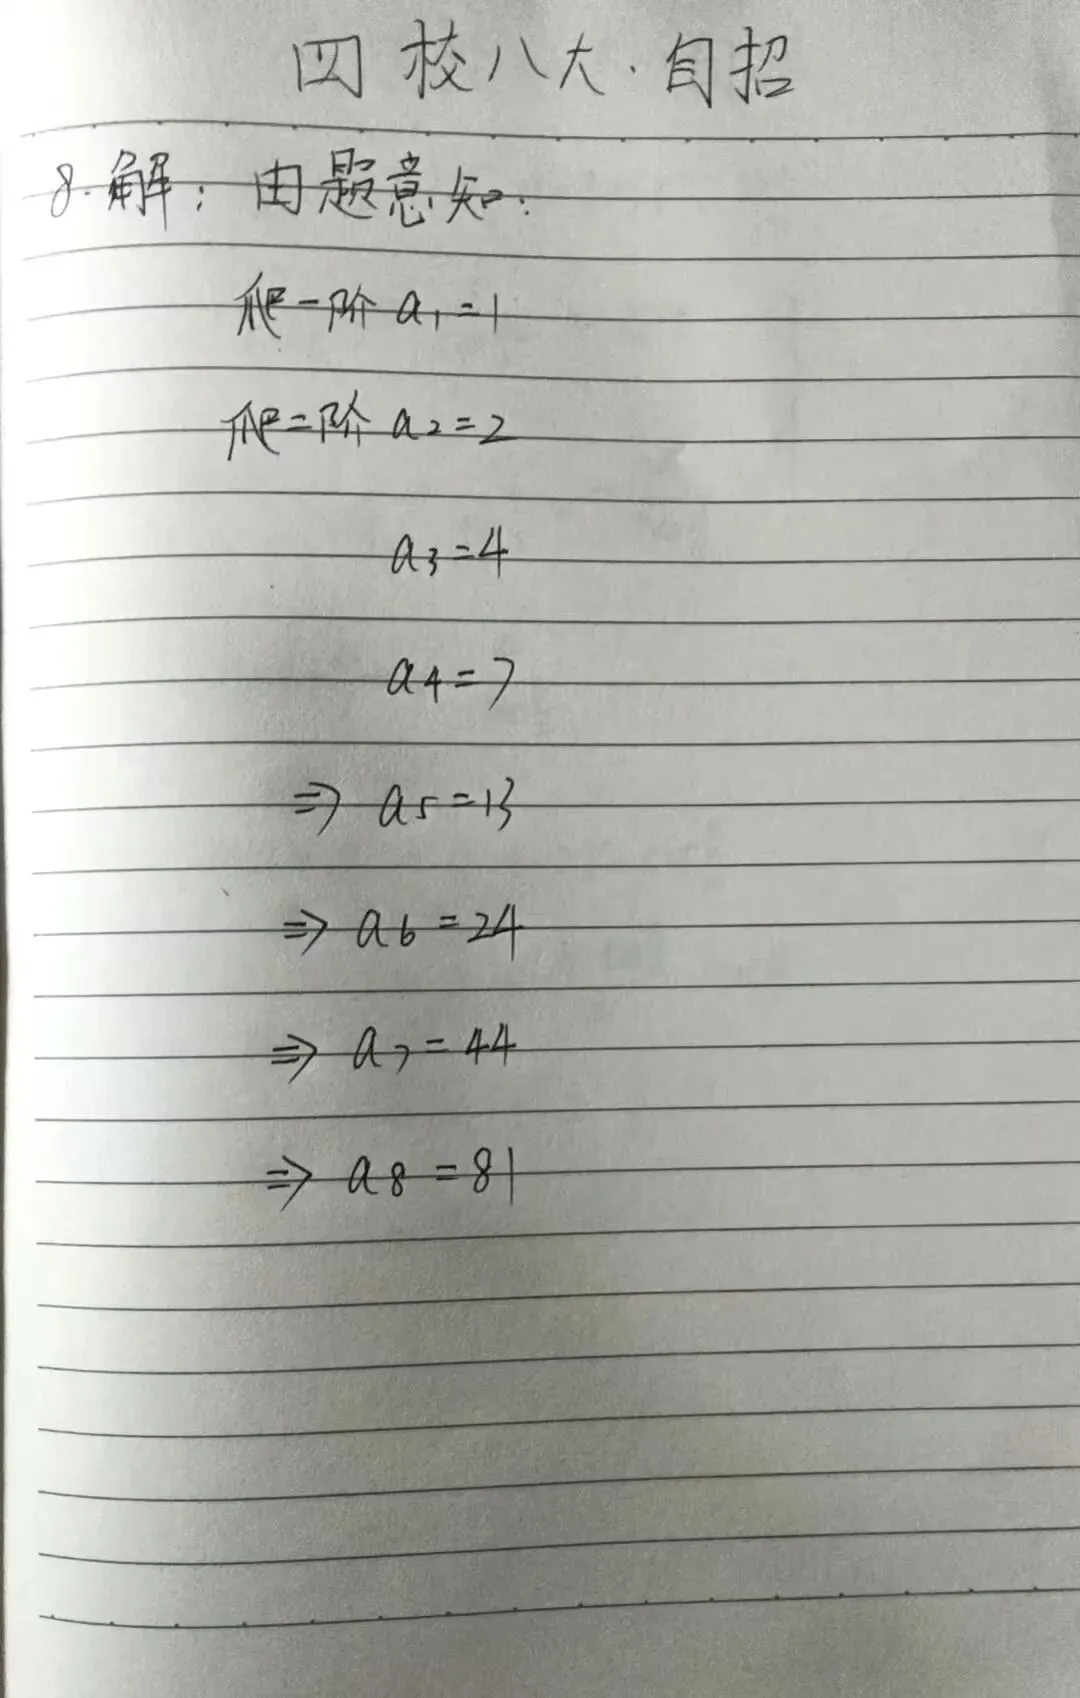 四校八大·自招
8.解：由题意知：
爬一阶 a₁=1
爬二阶 a₂=2
a₃=4
a₄=7
⇒ a₅=13
⇒ a₆=24
⇒ a₇=44
⇒ a₈=81